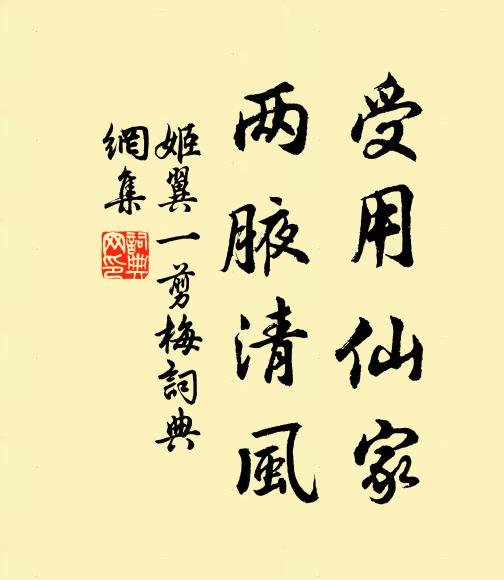 受用仙家
两腋清風
姬翼一剪梅詞典
網集
詞典
网印